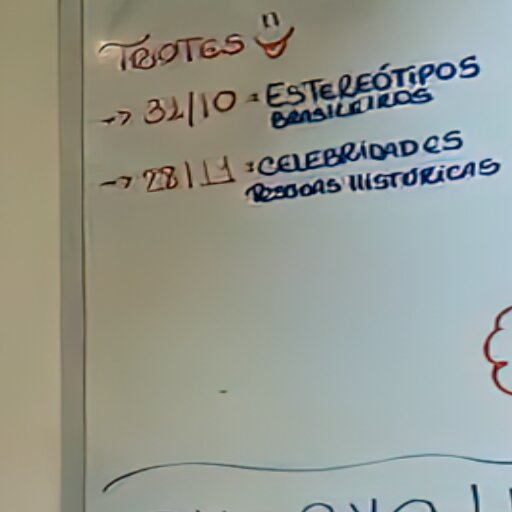 TROTES
-> 31/10 = ESTEREÓTIPOS
BRASILEIROS
-> 28/11 = CELEBRIDADES
PESSOAS HISTÓRICAS